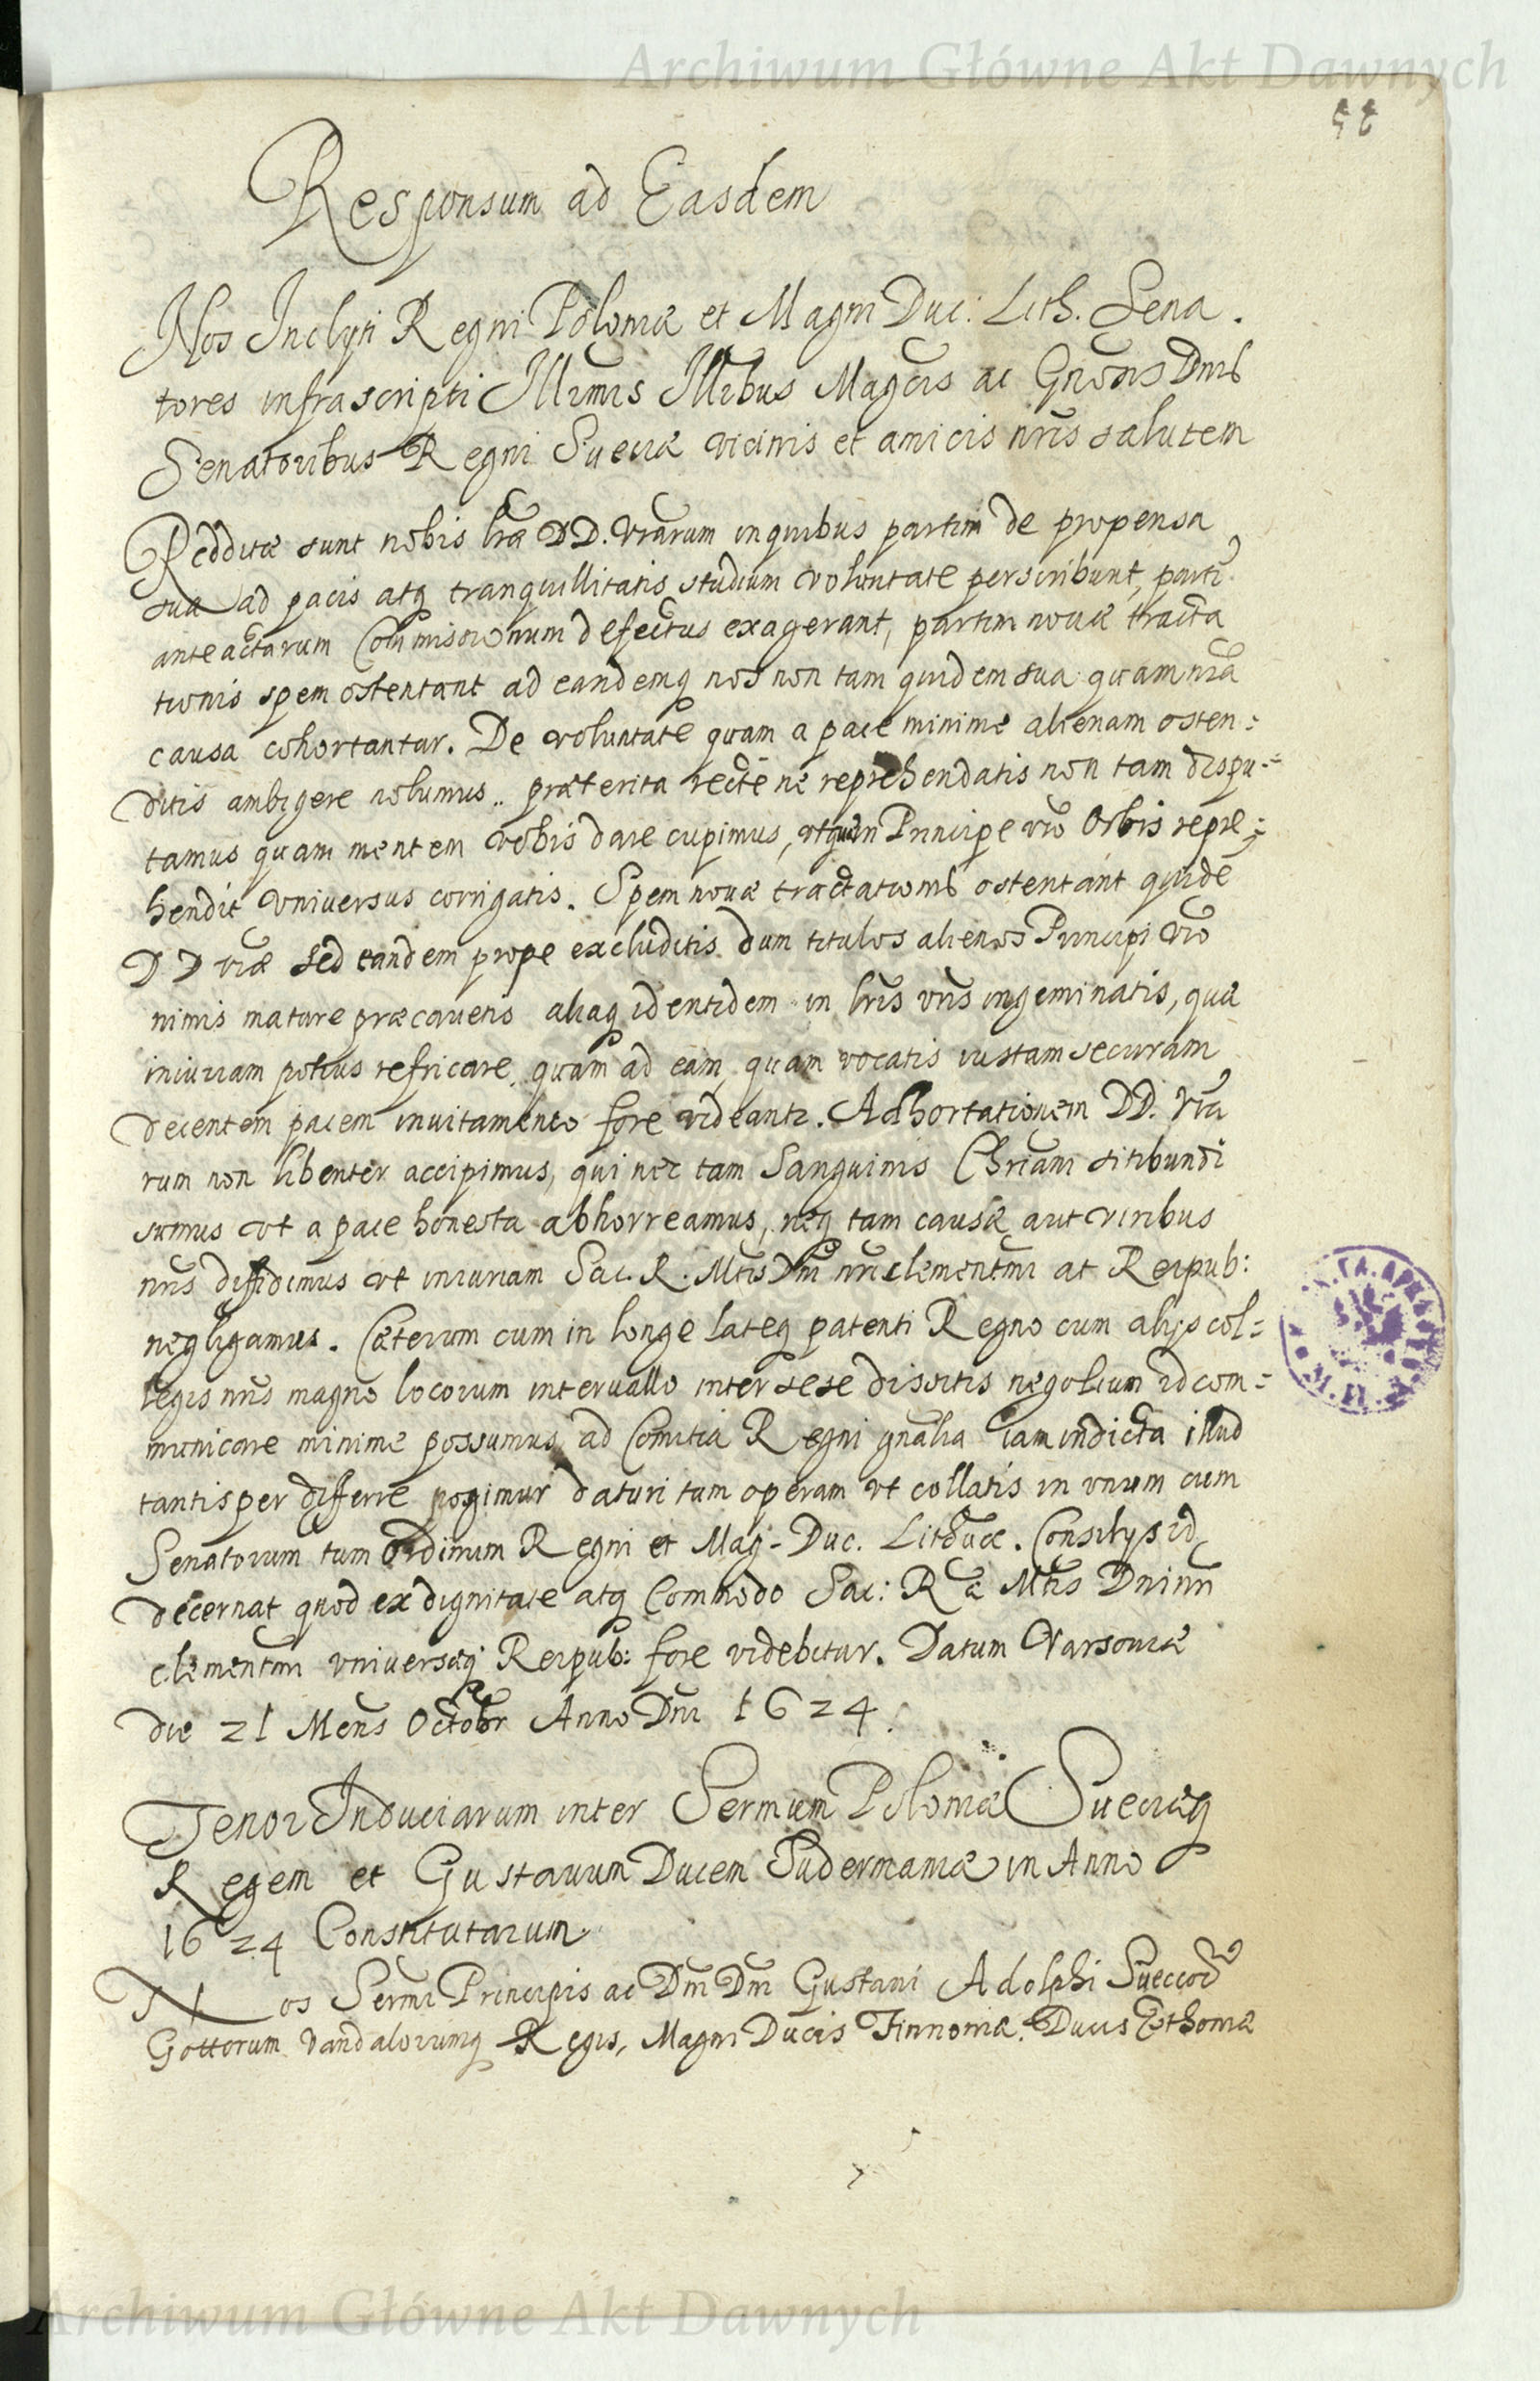 Archiwum Główne Akt Dawnych
Responsum ad Easdem
Nos Inclyti Regni Poloniæ et Magni Duc: Lith. Sena.
tores infrascripti Illrmis Illribus Magcis ac Gnosis Dnis
Senatoribus Regni Sueciæ vicinis et amicis nris salutem
Redditæ sunt nobis lræ DD. Vrarum in quibus partim de propensa
sua ad pacis atq tranquillitatis studium voluntate perscribunt, parti
anteactarum Commissionum defectus exagerant, partim nouæ tracta
tionis spem ostentant ad eandemq nos non tam quidem sua quam nra
causa cohortantur. De voluntate quam a pace minime alienam osten=
ditis ambigere nolumus.. præterita recte ne reprehendatis non tam dispu=
tamus quam mentem vobis dare cupimus, vt quæ in Principe vro Orbis repre=
hendit vniversus corrigatis. Spem nouæ tractationis ostentant quide
D D vræ sed eandem prope excluditis dum titulos alienos Principi vro
nimis mature præcavetis aliaq identidem in lris vris ingeminatis, quæ
iniuriam potius refricare, quam ad eam, quam vocatis iustam securam
decentem pacem inuitamento fore videantr. Adhortationem DD. Vra
rum non libenter accipimus, qui nec tam Sanguinis Chriani sitibundi
sumus vt a pace honesta abhorreamus, neq tam causæ aut viribus
nris diffidimus vt iniuriam Sac. R. Mtis Dni nri clementmi ac Reipub:
negligamus. Cæterum cum in longe lateq patenti Regno cum alijs col=
legis nris magno locorum interuallo inter sese dissitis negotium id com=
municare minime possumus ad Comitia Regni gnalia iam indicta illud
tantisper differre cogimur daturi tum operam vt collatis in vnum cum
Senatorum tum Ordinum Regni et Mag- Duc. Lithuæ. Consilijs id
decernat quod ex dignitate atq Commodo Sac: R æ Mtis Dni nri
clementmi vniversæq Reipub: fore videbitur. Datum Varsoviæ
die 21 Mens Octobr Anno Dni 1624.
Tenor Induciarum inter Sermum Poloniæ Sueciæq
Regem et Gustauum Ducem Sudermaniæ in Anno
1624 Constitutarum
Nos Sermi Principis ac Dni Dni Gustaui Adolphi Suecor
Gottorum Vandalorumq Regis, Magni Ducis Finnoniæ. Ducis Esthoniæ
Archiwum Główne Akt Dawnych